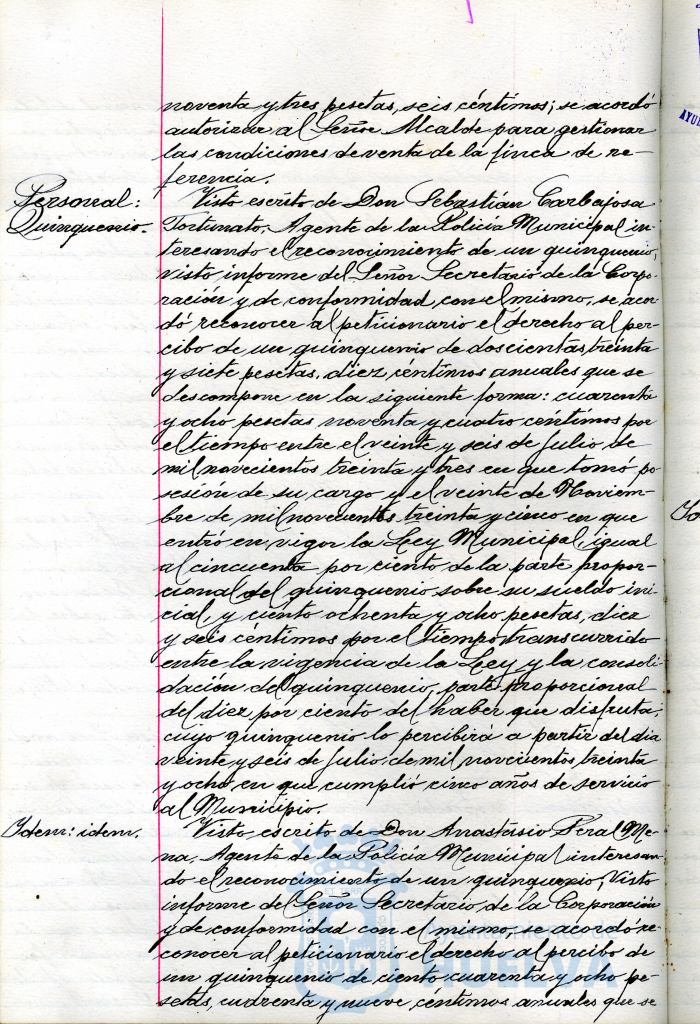 noventa y tres pesetas, seis céntimos; se acordó
autorizar al Señor Alcalde para gestionar
las condiciones de venta de la finca de re-
ferencia.
Personal:
Quinquenio.
Visto escrito de Don Sebastián Carbajosa
Fortunato, Agente de la Policía Municipal in-
teresando el reconocimiento de un quinquenio,
visto informe del Señor Secretario de la Corpo-
ración y de conformidad, con el mismo, se acor-
dó reconocer al peticionario el derecho al per-
cibo de un quinquenio de doscientas treinta
y siete pesetas, diez céntimos anuales que se
descompone en la siguiente forma: cuarenta
y ocho pesetas noventa y cuatro céntimos por
el tiempo entre el veinte y seis de Julio de
mil novecientos treinta y tres en que tomó po-
sesión de su cargo y el veinte de Noviem-
bre de mil novecientos treinta y cinco en que
entró en vigor la Ley Municipal, igual
al cincuenta por ciento de la parte propor-
cional del quinquenio sobre su sueldo ini-
cial, y ciento ochenta y ocho pesetas, diez
y seis céntimos por el tiempo transcurrido
entre la vigencia de la Ley y la consoli-
dación del quinquenio, parte proporcional
del diez por ciento del haber que disfruta;
cuyo quinquenio lo percibirá a partir del dia
veinte y seis de Julio de mil novecientos treinta
y ocho en que cumplió cinco años de servicio
al Municipio.
Idem: idem.
Visto escrito de Don Anastasio Peral Me-
na, Agente de la Policía Municipal interesan-
do el reconocimiento de un quinquenio; Visto
informe del Señor Secretario de la Corporación
y de conformidad con el mismo, se acordó re-
conocer al peticionario el derecho al percibo de
un quinquenio de ciento cuarenta y ocho pe-
setas, cuarenta y nueve céntimos anuales que se
Ayuntamiento de
HUELVA